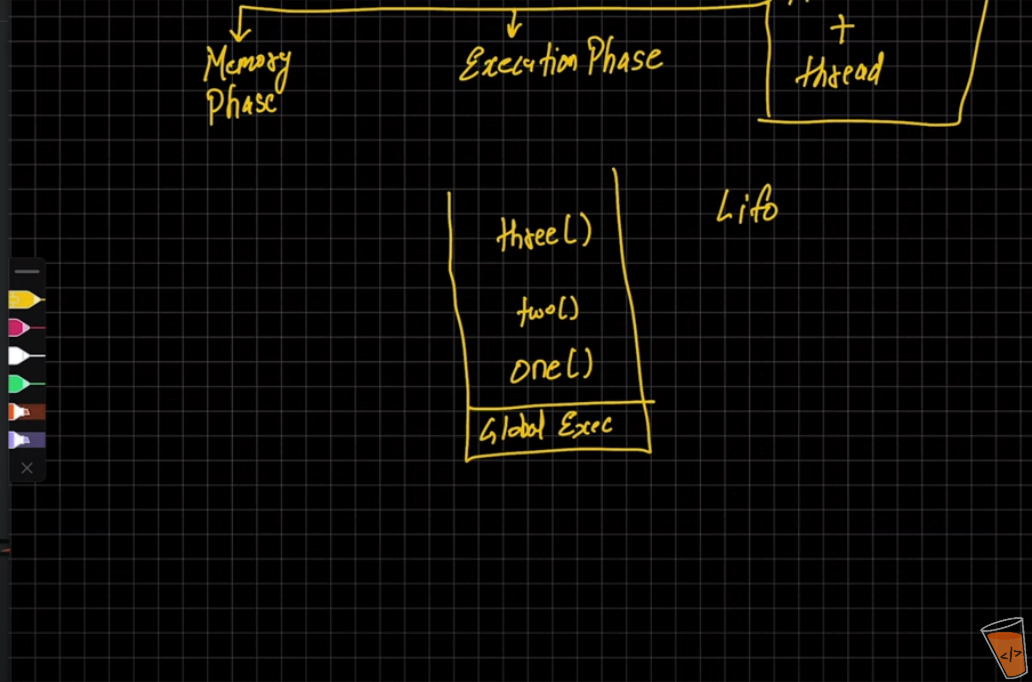 Memory
Phase
Execution Phase
+
thread
Lifo
three()
two()
one()
Global Exec
</>